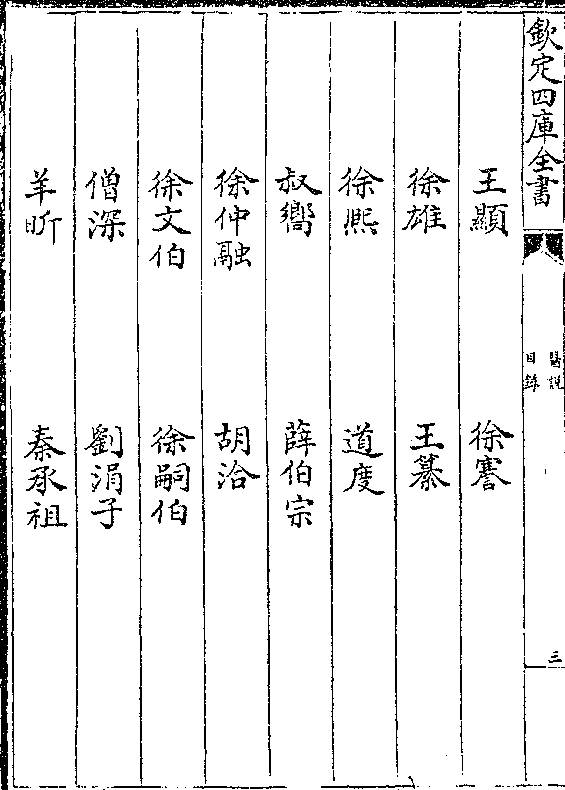 欽定四庫全書
醫說
目錄
三
王顯 徐謇
徐雄 王纂
徐熙 道度
叔嚮 薛伯宗
徐仲融 胡洽
徐文伯 徐嗣伯
僧深 劉涓子
羊昕 秦承祖